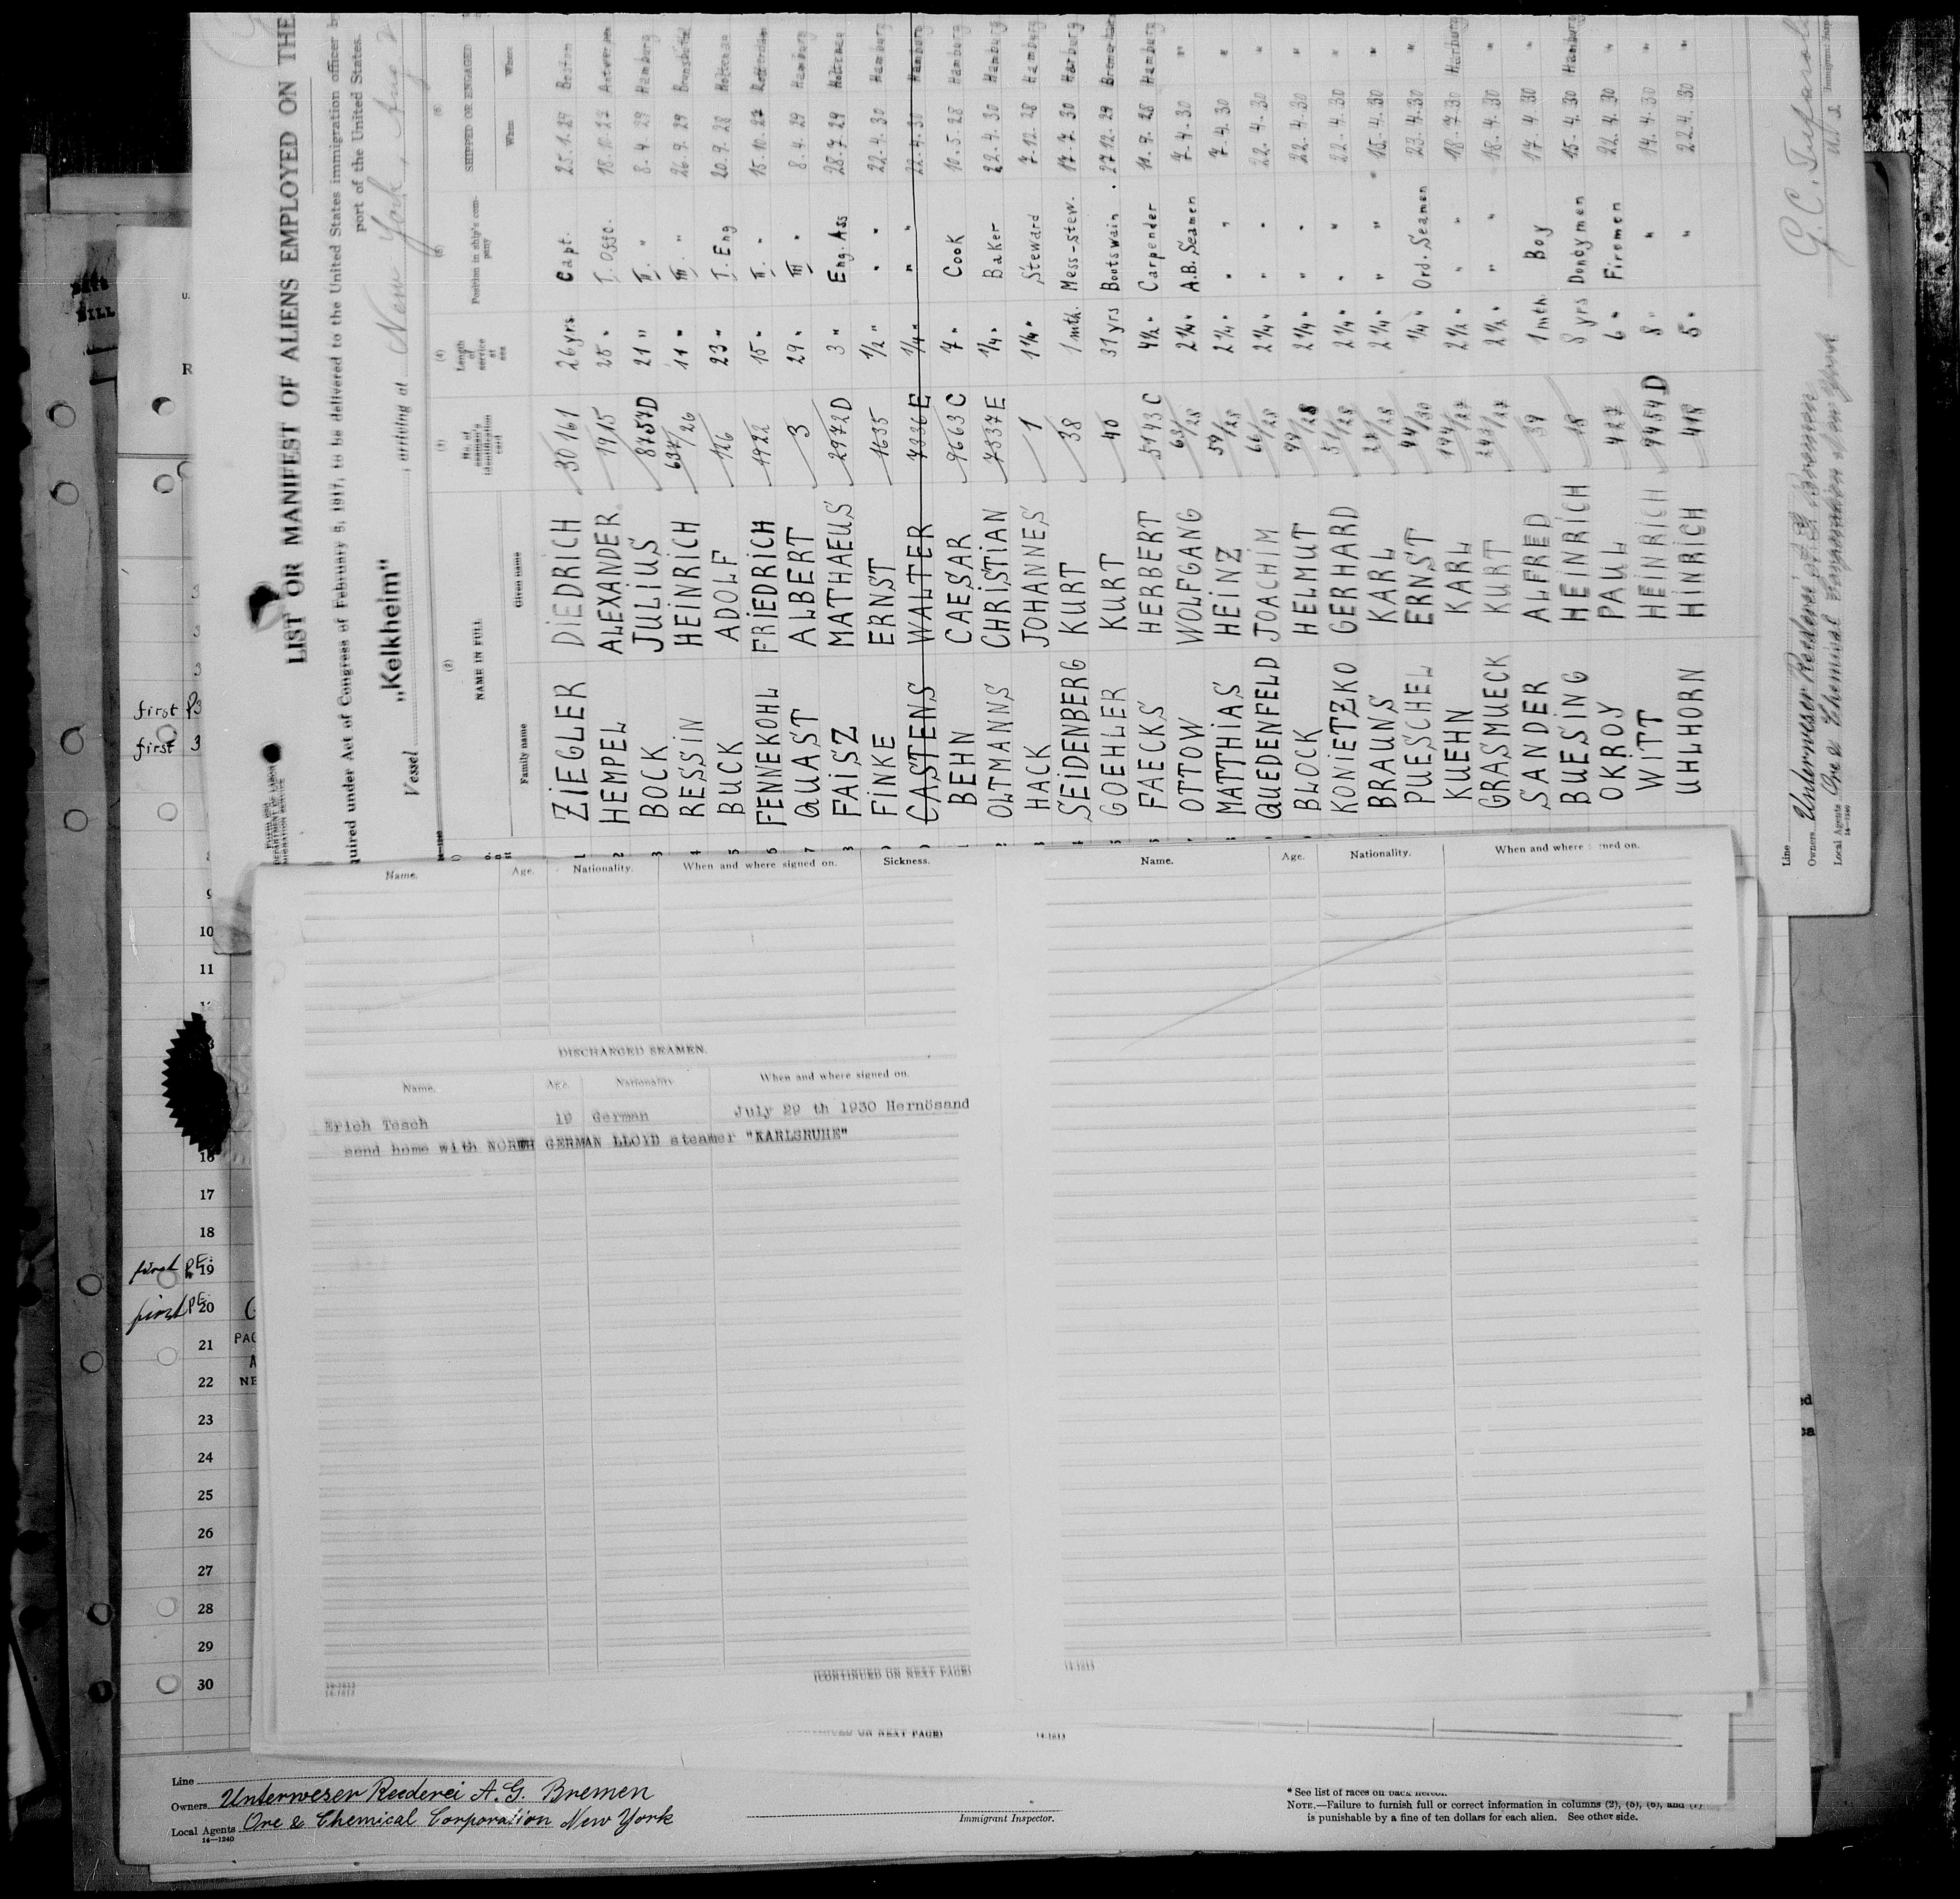 LIST OR MANIFEST OF ALIENS EMPLOYED ON THE
quired under Act of Congress of February 5, 1917, to be delivered to the United States immigration officer
port of the United States.
Vessel „Kelkheim“, arriving at New York, Aug 2
(2) (3) (4)
NAME IN FULL
Family name Given name
No. of seaman's identification card
Length of service at sea
Position in ship's company
SHIPPED OR ENGAGED
When Where
1 ZIEGLER DIEDRICH 30161 26 yrs. Capt. 25.1.29 Boston
2 HEMPEL ALEXANDER 1915 25 " I. Offc.
3 BOCK JULIUS 8757D 21 " II. " 8.4.29 Hamburg
4 RESSIN HEINRICH 637/26 11 " III. " 26.9.29
5 BUCK ADOLF 126 23 " I. Eng 20.9.28
6 FENNEKOHL FRIEDRICH 1922 15 " II. " 15.10.27 Rotterdam
7 QUAST ALBERT 3 29 " III " 8.4.29 Hamburg
8 FAISZ MATHAEUS 2972D 3 " Eng. Ass 28.7.29
FINKE ERNST 1635 1/2 " " 22.4.30 Hamburg
CASTENS WALTER 7336E 1/4 " " 22.4.30 Hamburg
BEHN CAESAR 9663C 7 " Cook 10.5.28 Hamburg
OLTMANNS CHRISTIAN 7837E 1/4 " Baker 22.4.30 Hamburg
HACK JOHANNES 1 1 1/4 " Steward 7.12.28 Hamburg
SEIDENBERG KURT 38 1 mth. Mess-stew. 17.7.30 Harburg
GOEHLER KURT 40 31 yrs Bootswain. 27.12.29
FAECKS HERBERT 5143C 4 1/2 " Carpender 11.9.28 Hamburg
OTTOW WOLFGANG 63/28 2 1/4 " A.B. Seamen 7.4.30 "
MATTHIAS HEINZ 59/28 2 1/4 " " 7.4.30 "
QUEDENFELD JOACHIM 66/28 2 1/4 " " 22.4.30 "
BLOCK HELMUT 99/28 2 1/4 " " 22.4.30 "
KONIETZKO GERHARD 51/28 2 1/4 " " 22.4.30 "
BRAUNS KARL 2 1/4 " " 15.4.30 "
PUESCHEL ERNST 44/30 1/4 " Ord. Seamen 23.4.30 "
KUEHN KARL 194/27 2 1/2 " " 18.7.30 Harburg
GRASMUECK KURT 2 1/2 " " 18.4.30 "
SANDER ALFRED 39 1 mth. Boy 17.4.30 "
BUESING HEINRICH 18 8 yrs Donkymen 15.4.30 Hamburg
OKROY PAUL 427 6 " Firemen 22.4.30 "
WITT HEINRICH 9454D 8 " " 14.4.30 "
UHLHORN HINRICH 418 5 " " 22.4.30 "
Line
Owners Unterweser Reederei A.G. Bremen
Local Agents Ore & Chemical Corporation New York
14—1240
first
first
9
10
11
Name. Age. Nationality. When and where signed on. Sickness.
Name. Age. Nationality. When and where signed on.
DISCHARGED SEAMEN.
Name. Age. Nationality When and where signed on.
Erich Tesch 19 German July 29 th 1930 Hernösand
send home with NORTH GERMAN LLOYD steamer "KARLSRUHE"
16
17
18
first P.E. 19
first P.E. 20
21
22
23
24
25
26
27
28
29
30
(CONTINUED ON NEXT PAGE)
14-1813
14-1813
(CONTINUED ON NEXT PAGE)
14-1813
Line
Owners Unterweser Reederei A.G. Bremen
Local Agents Ore & Chemical Corporation New York
14—1240
Immigrant Inspector.
* See list of races on back hereof.
NOTE.—Failure to furnish full or correct information in columns (2), (5), (6), and (7)
is punishable by a fine of ten dollars for each alien. See other side.